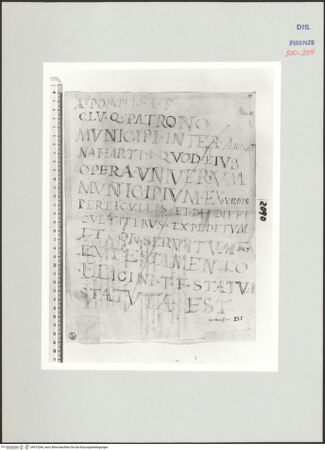 DIS.
FIRENZE
500-209
A POMPEIO A F
CLV Q PATRONO
MVNICIPI INTERAMNAT
NAHARTIS QVOD EIVS
OPERA VNIVERSVM
MVNICIPIVM EX
PERICVLEIS ET DIFFI
CVLTATIBVS EXPEDITVM
ET CONSERVATVM EST
EX TESTAMENTO
STATV
STATVTA EST
237
2090